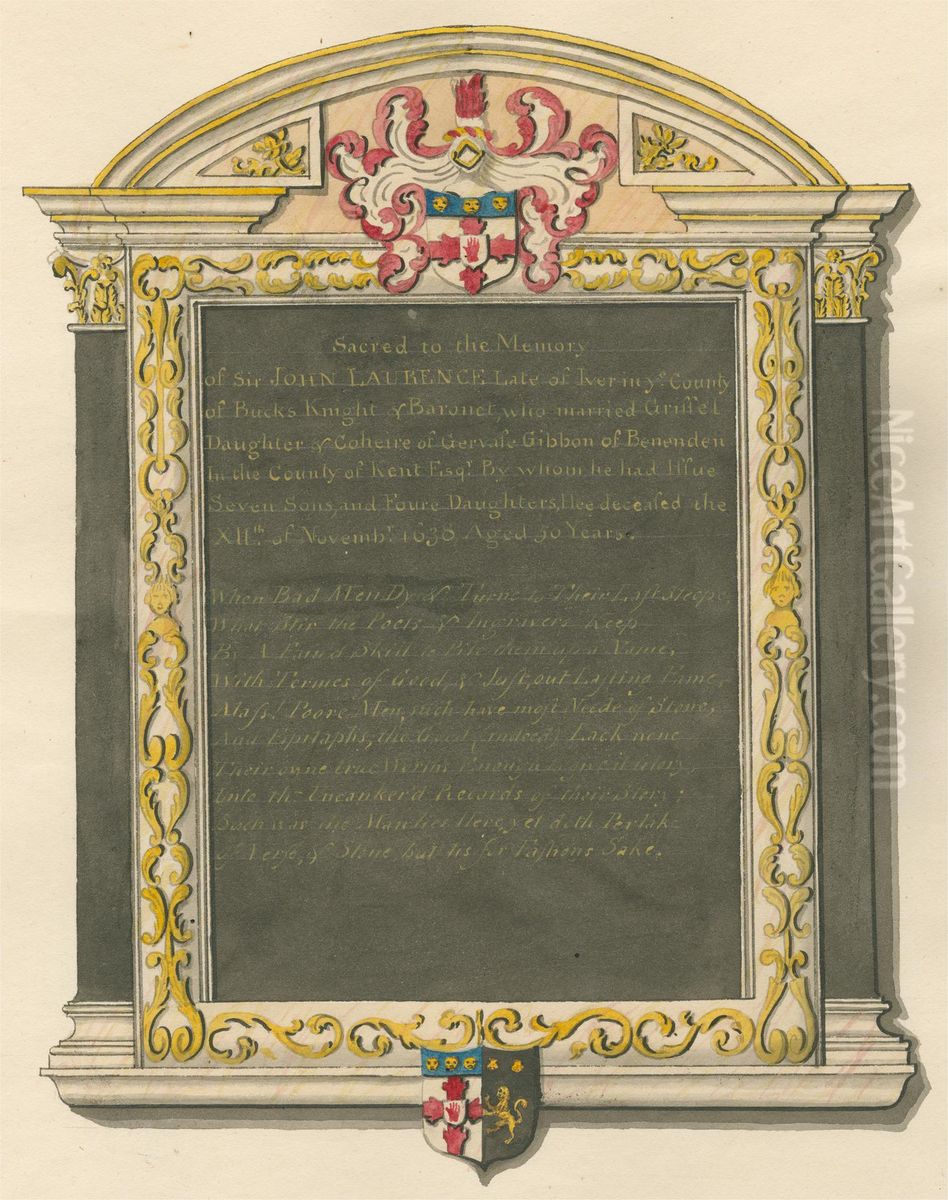 Sacred to the Memory
of Sir JOHN LAURENCE Late of Iver in yᵉ County
of Bucks Knight & Baronet, who married Grissel
Daughter & Coheire of Gervase Gibbon of Benenden
In the County of Kent Esqʳ. By whom he had Issue
Seven Sons, and Foure Daughters, Hee deceased the
XIIᵗʰ. of Novembʳ. 1638 Aged 50 Years.
When Bad Men Dy & Turne to Their Last Sleepe
What Stir the Poets & Ingravers Keep
By A Skid to Pile them up a Name,
With Termes of Good, & Just, out Lasting Fame,
Alass! Poore Men, such have most Neede of Stone,
And Epitaphs, the Good (indeed) Lack none
Their owne true Enough
Unto the Uncanker'd Records of their Story;
Such was the Man lies Here, yet doth Pertake
of Verse, & Stone, but tis for Fashions Sake.
NiceArtGallery.com